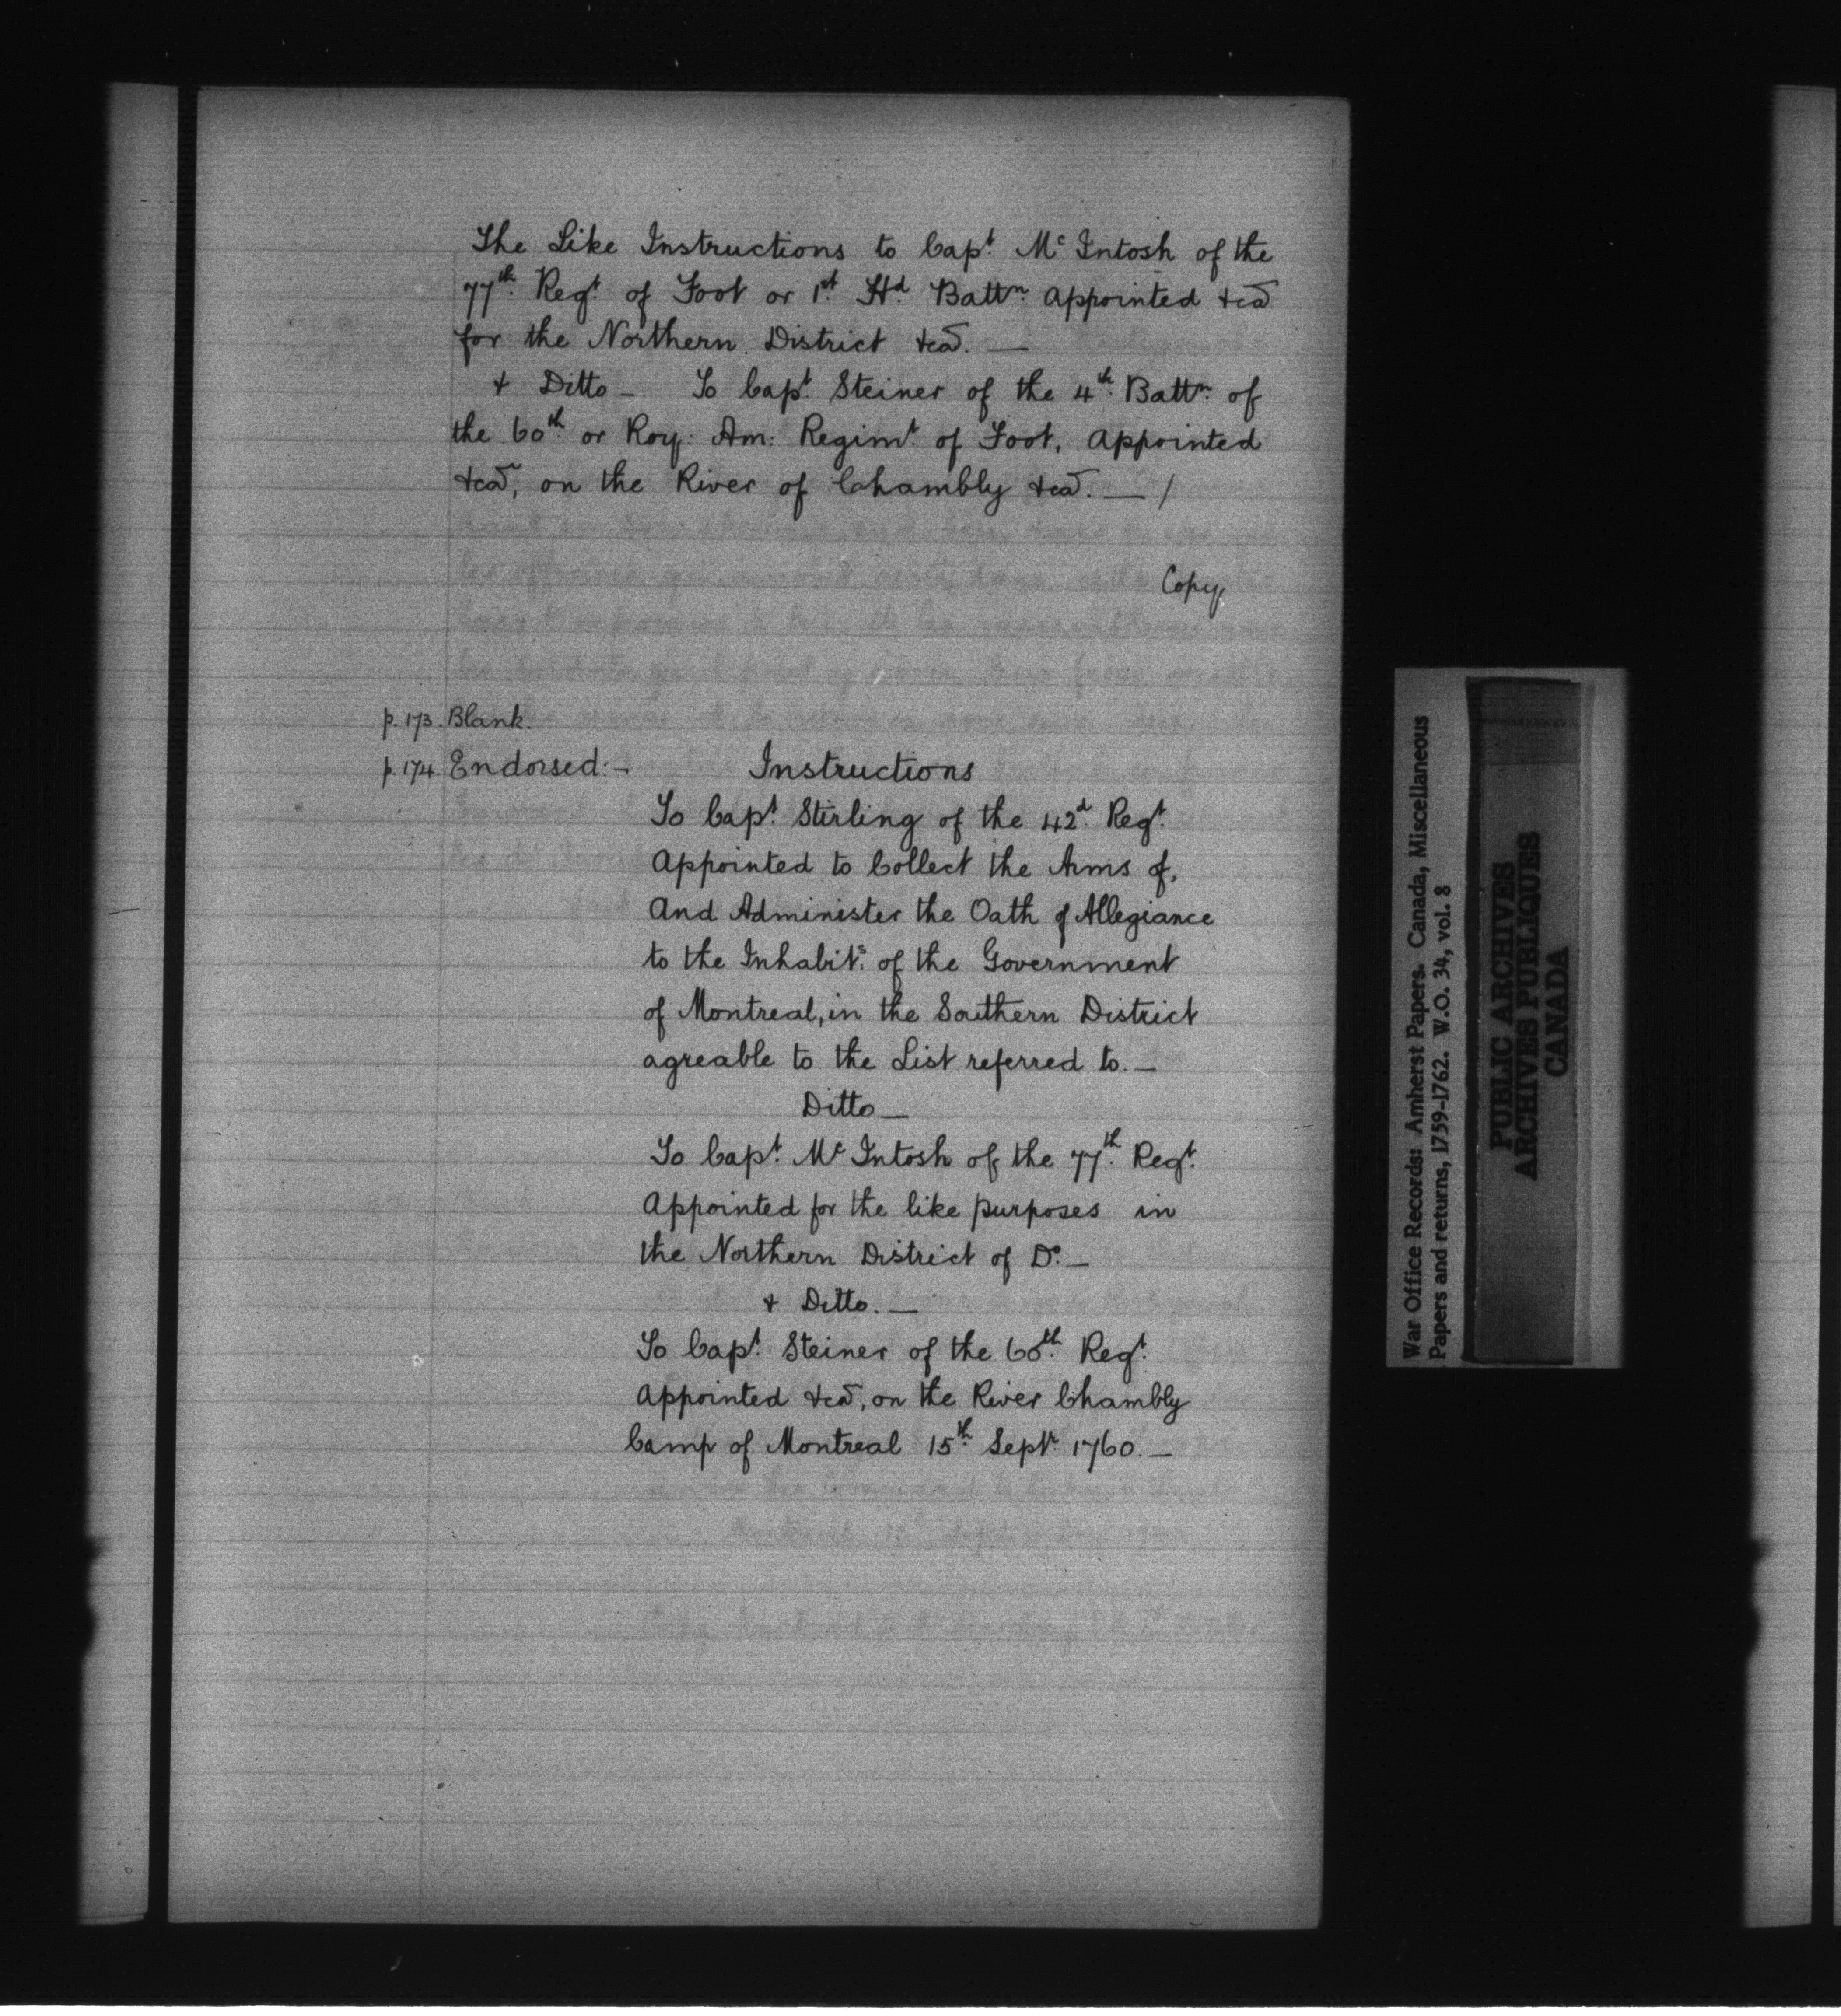 The Like Instructions to Capt. Mc Intosh of the
77th. Regt. of Foot or 1st. Hd. Battn. appointed &ca
for the Northern District &ca. —
& Ditto — To Capt. Steiner of the 4th. Battn. of
the 60th. or Roy: Am: Regimt. of Foot, appointed
&ca, on the River of Chambly &ca. — /
Copy.
p. 173. Blank.
p. 174. Endorsed:— Instructions
To Capt. Stirling of the 42d. Regt.
Appointed to Collect the Arms of,
And Administer the Oath of Allegiance
to the Inhabits. of the Government
of Montreal, in the Southern District
agreable to the List referred to. —
Ditto —
To Capt. Mc Intosh of the 77th. Regt.
Appointed for the like purposes in
the Northern District of Do. —
& Ditto. —
To Capt. Steiner of the 60th. Regt.
Appointed &ca, on the River Chambly
Camp of Montreal 15th. Septr. 1760. —
War Office Records: Amherst Papers. Canada, Miscellaneous
Papers and returns, 1759-1762. W.O. 34, vol. 8
PUBLIC ARCHIVES
ARCHIVES PUBLIQUES
CANADA